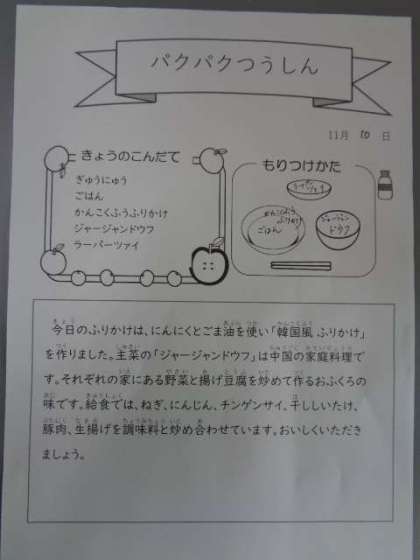 パクパクつうしん
11月 10 日
きょうのこんだて
ぎゅうにゅう
ごはん
かんこくふうふりかけ
ジャージャンドウフ
ラーパーツァイ
もりつけかた
ラーパー
ツァイ
かんこくふう
ふりかけ
ごはん
ジャージャン
ドウフ
今日のふりかけは、にんにくとごま油を使い「韓国風 ふりかけ」
を作りました。主菜の「ジャージャンドウフ」は中国の家庭料理で
す。それぞれの家にある野菜と揚げ豆腐を炒めて作るおふくろの
味です。給食では、ねぎ、にんじん、チンゲンサイ、干ししいたけ、
豚肉、生揚げを調味料と炒め合わせています。おいしくいただき
ましょう。